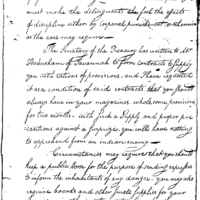 must make the delinquents feel the effects
of discipline either by corporal punish or otherwise
as the case may require.
The Secretary of the Treasury has written to Mr
Habersham of Savannah to form contracts to supply
you with rations of provisions. and I have requested
as a condition of said contracts that you should
always have in your magazines wholesome provisions
for two months — with such a supply and proper pre
cautions against a surprize, you will have nothing
to apprehend from an indian enemy —
Circumstances may require that you should
keep a public Horse for the purpose of sending expresses
to inform the inhabitants of any danger. you may also
require boards and other small supplies for your